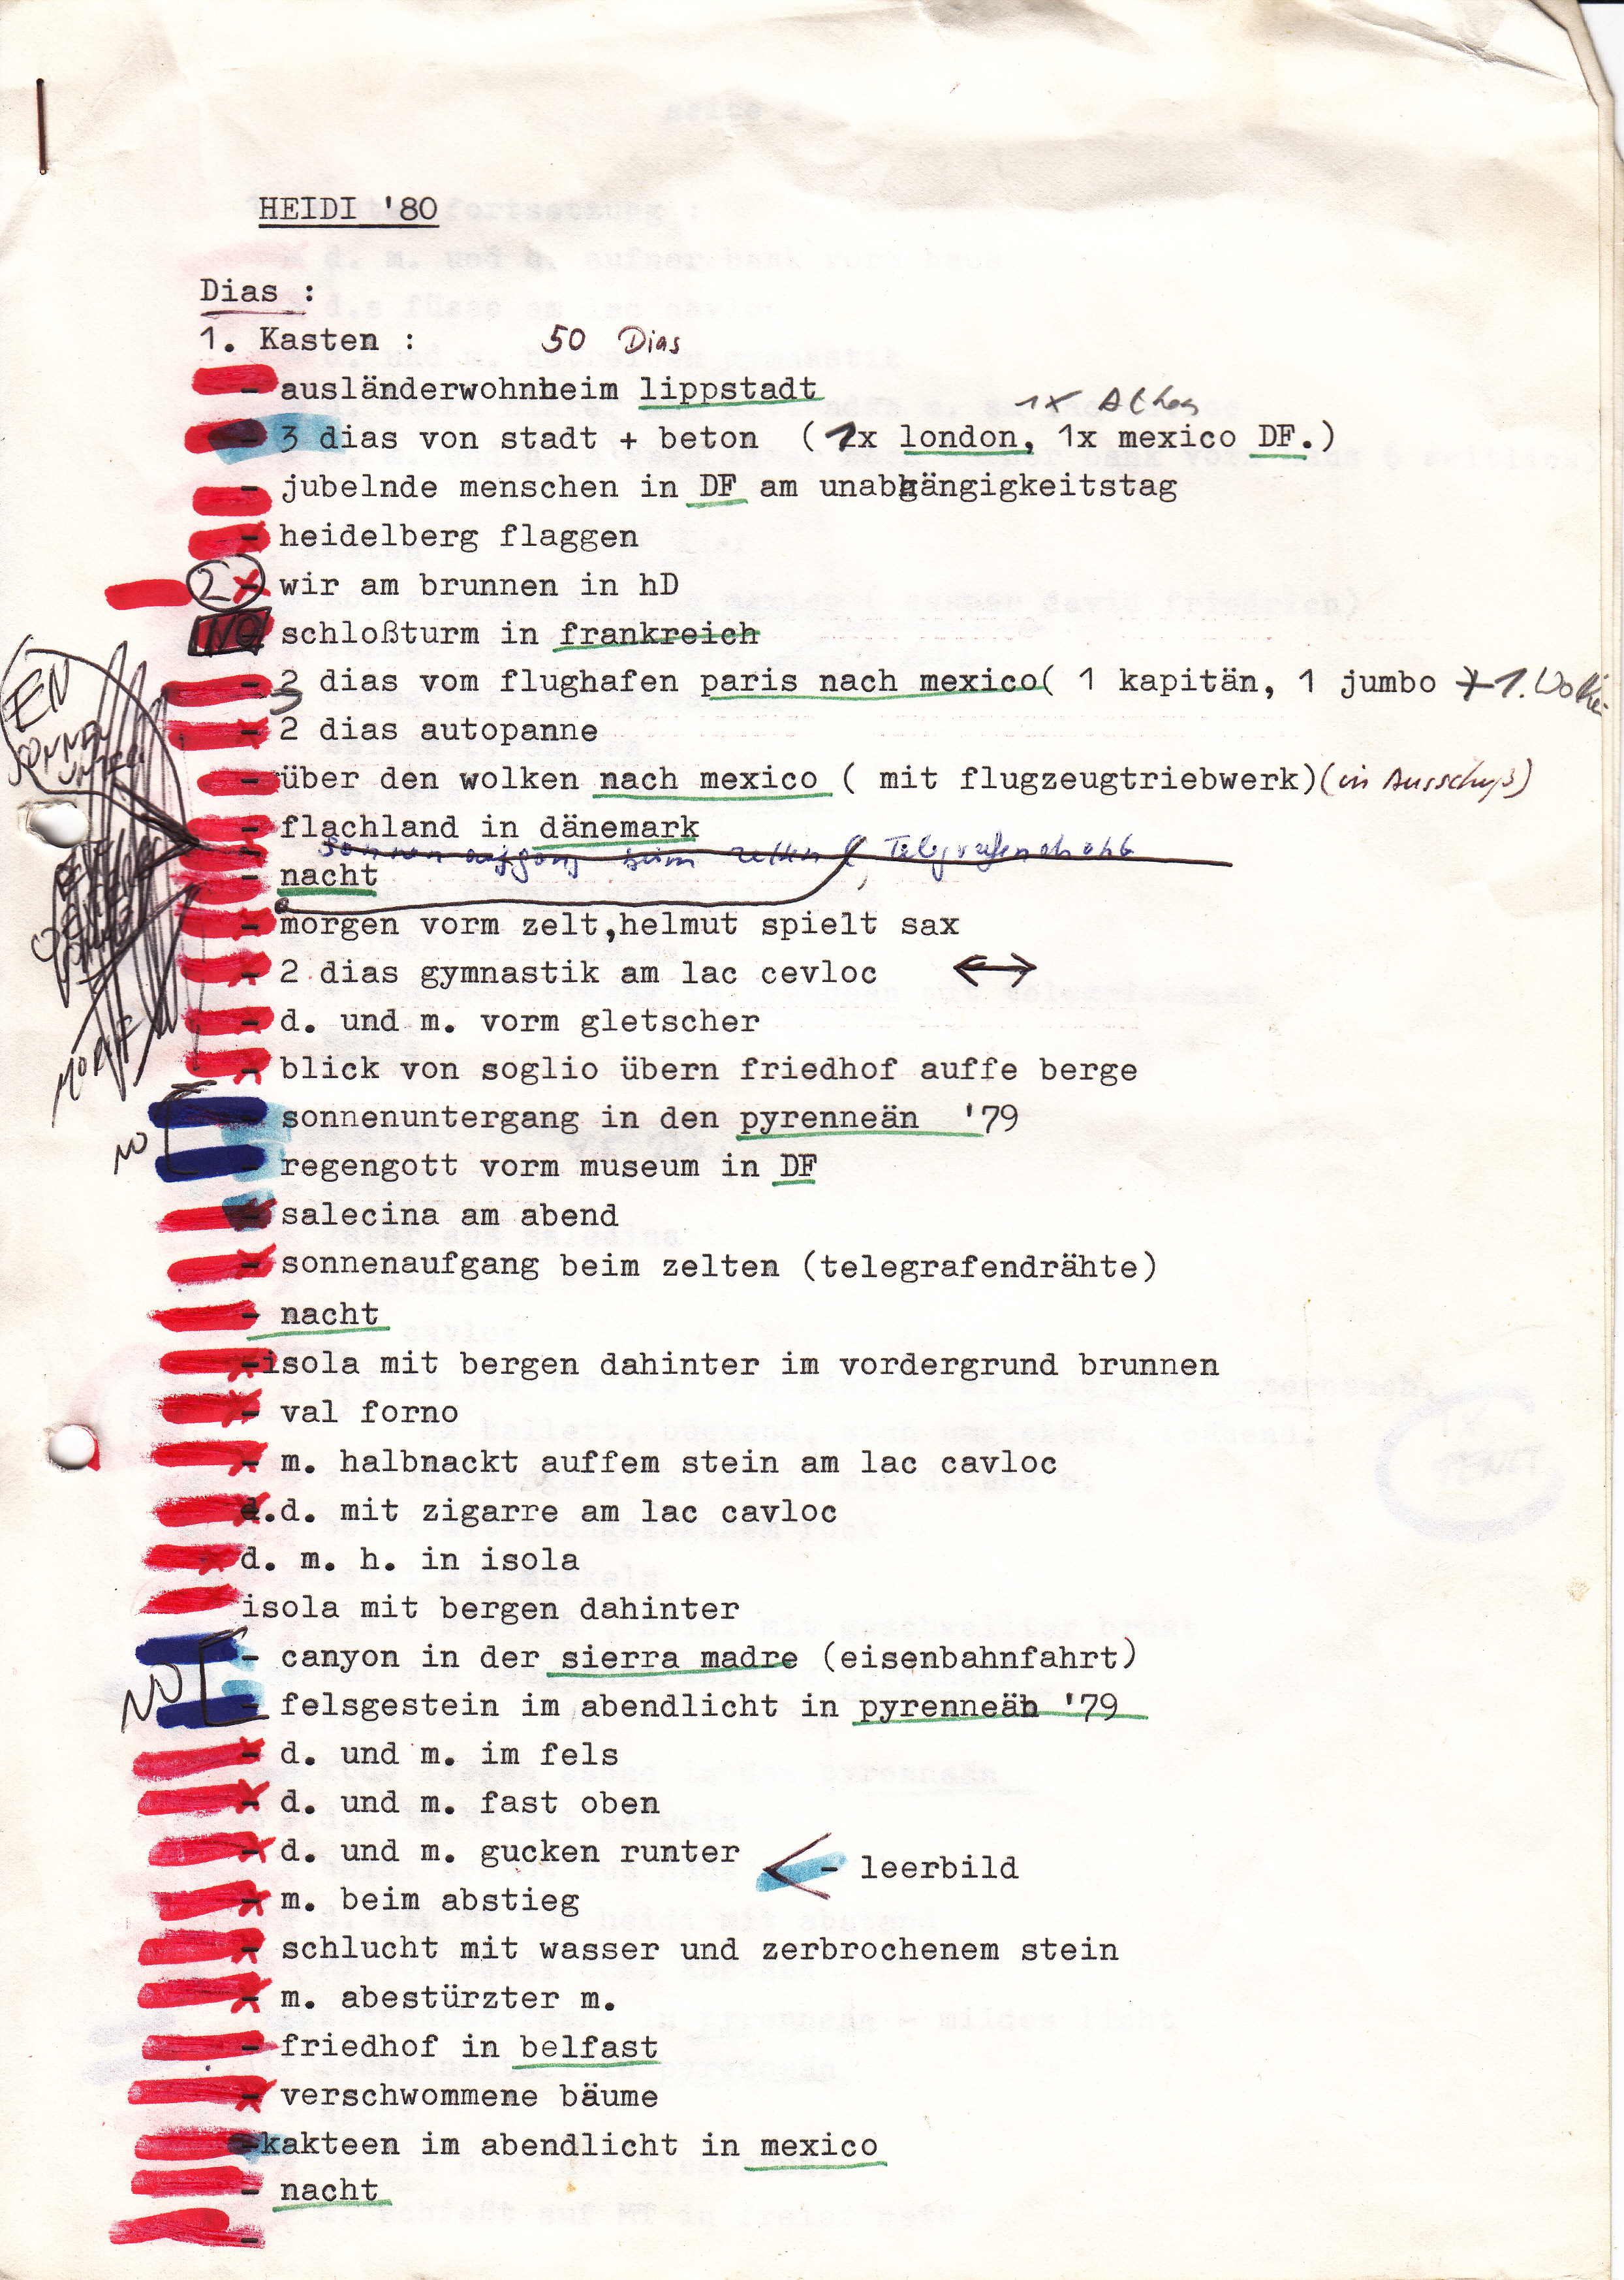 HEIDI '80
Dias :
1. Kasten : 50 Dias
- ausländerwohnheim lippstadt
1x Athen
- 3 dias von stadt + beton ( 1x london, 1x mexico DF.)
- jubelnde menschen in DF am unabhängigkeitstag
- heidelberg flaggen
2x wir am brunnen in hD
NO schloßturm in frankreich
- 3 dias vom flughafen paris nach mexico( 1 kapitän, 1 jumbo + 1. Wolke
- 2 dias autopanne
- über den wolken nach mexico ( mit flugzeugtriebwerk) (in Ausschuß)
- flachland in dänemark
sonnenaufgang beim zelten (Telegrafendraht
- nacht
- morgen vorm zelt,helmut spielt sax
- 2 dias gymnastik am lac cevloc ↔
- d. und m. vorm gletscher
- blick von soglio übern friedhof auffe berge
- sonnenuntergang in den pyrenneän '79
NO
- regengott vorm museum in DF
- salecina am abend
- sonnenaufgang beim zelten (telegrafendrähte)
- nacht
-isola mit bergen dahinter im vordergrund brunnen
- val forno
- m. halbnackt auffem stein am lac cavloc
.d. mit zigarre am lac cavloc
d. m. h. in isola
isola mit bergen dahinter
- canyon in der sierra madre (eisenbahnfahrt)
NO
- felsgestein im abendlicht in pyrenneän '79
- d. und m. im fels
- d. und m. fast oben
- d. und m. gucken runter < - leerbild
- m. beim abstieg
- schlucht mit wasser und zerbrochenem stein
- m. abestürzter m.
- friedhof in belfast
- verschwommene bäume
-kakteen im abendlicht in mexico
- nacht
-